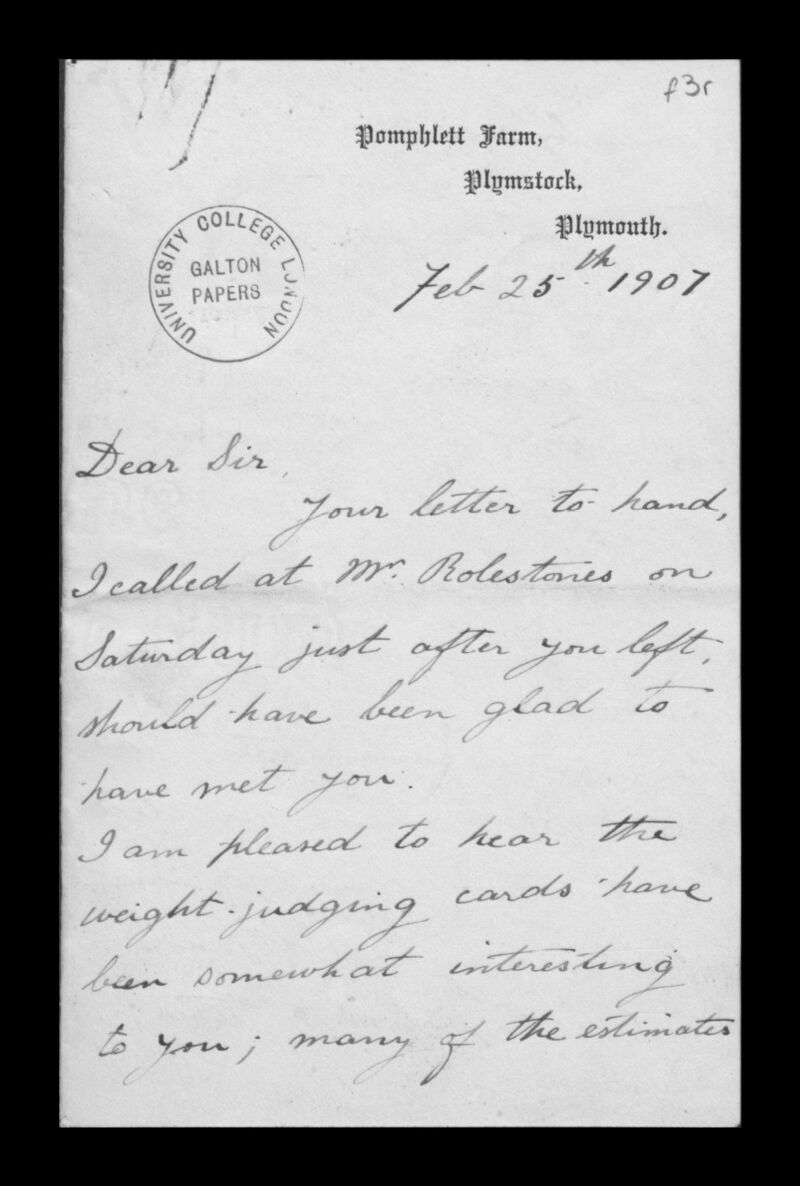 f3r
Pomphlett Farm,
Plymstock,
Plymouth.
UNIVERSITY COLLEGE LONDON
GALTON
PAPERS
Feb 25th 1907
Dear Sir,
Your letter to hand,
I called at Mr. Rolestones on
Saturday just after you left,
should have been glad to
have met you.
I am pleased to hear the
weight-judging cards have
been somewhat interesting
to you; many of the estimates